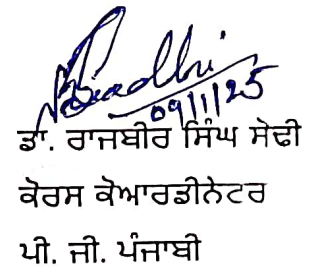 09/1/25
ਡਾ. ਰਾਜਬੀਰ ਸਿੰਘ ਸੋਢੀ
ਕੋਰਸ ਕੋਆਰਡੀਨੇਟਰ
ਪੀ. ਜੀ. ਪੰਜਾਬੀ